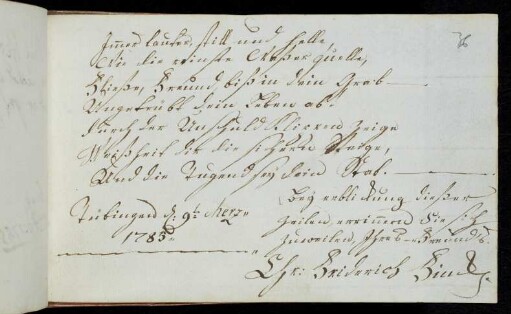 76
Immer lauter, still und helle,
Wie die reinste Waßer quelle,
Fließe, Freund, biß in dein Grab
Ungetrübt dein Leben ab.
Durch der Unschuld Kleeren zeige
Weißheit dir die sichern Steige,
Und die Tugend sey dein Stab.
Tübingen d. 9t. Merz
1785.
Bey erblickung dießer
Zeilen, erinnern Sie sich
zuweilen, Ihres Freunds.
Chr. Friderich